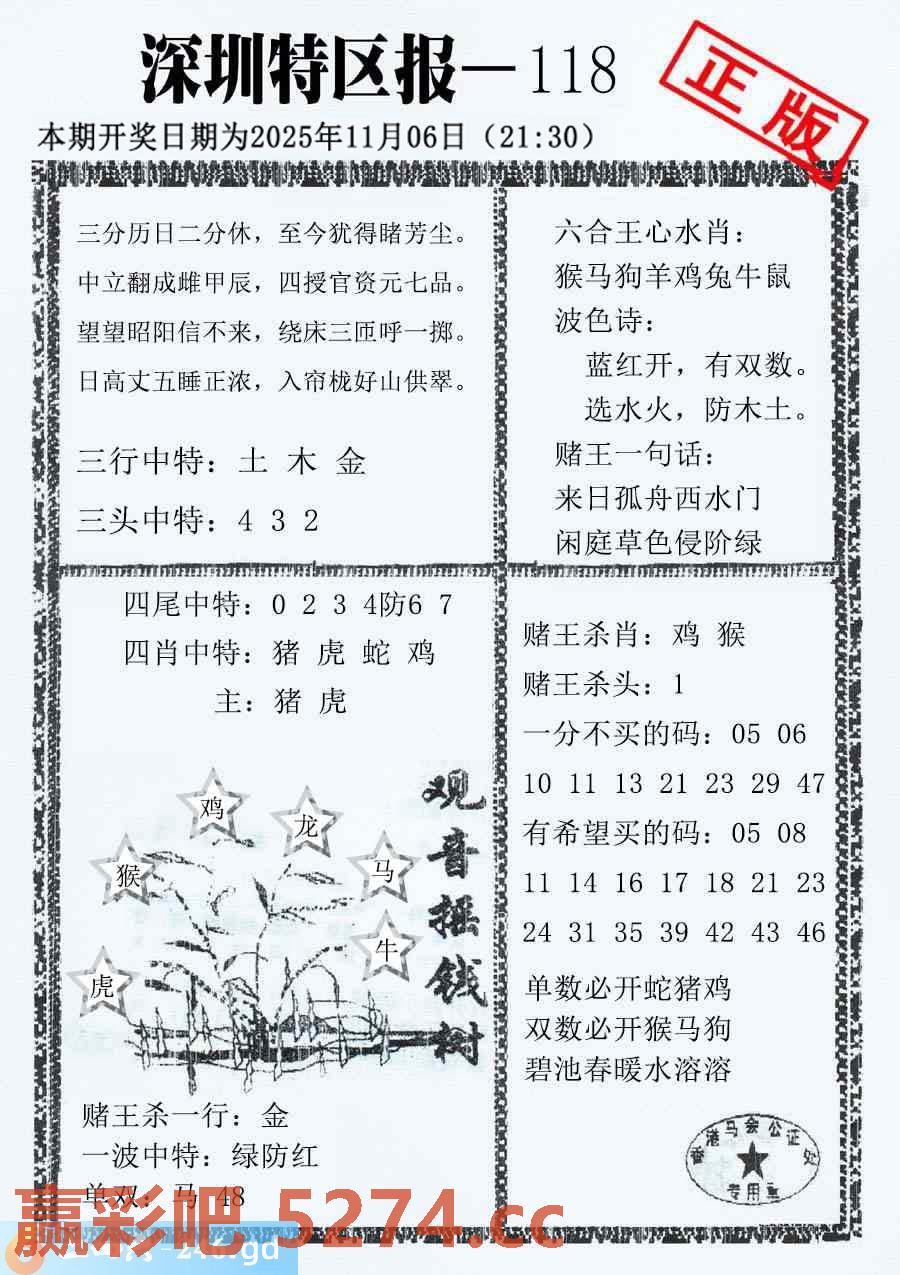 深圳特区报—118
正版
本期开奖日期为2025年11月06日（21:30）
三分历日二分休，至今犹得睹芳尘。
中立翻成雌甲辰，四授官资元七品。
望望昭阳信不来，绕床三匝呼一掷。
日高丈五睡正浓，入帘栊好山供翠。
三行中特：土 木 金
三头中特：4 3 2
六合王心水肖：
猴马狗羊鸡兔牛鼠
波色诗：
蓝红开，有双数。
选水火，防木土。
赌王一句话：
来日孤舟西水门
闲庭草色侵阶绿
四尾中特：0 2 3 4防6 7
四肖中特：猪 虎 蛇 鸡
主：猪 虎
观音摇钱树
鸡
龙
猴
马
牛
虎
赌王杀一行：金
一波中特：绿防红
单双：马 48
赌王杀肖：鸡 猴
赌王杀头：1
一分不买的码：05 06
10 11 13 21 23 29 47
有希望买的码：05 08
11 14 16 17 18 21 23
24 31 35 39 42 43 46
单数必开蛇猪鸡
双数必开猴马狗
碧池春暖水溶溶
香港马会公证处
专用章
赢彩吧 5274.cc